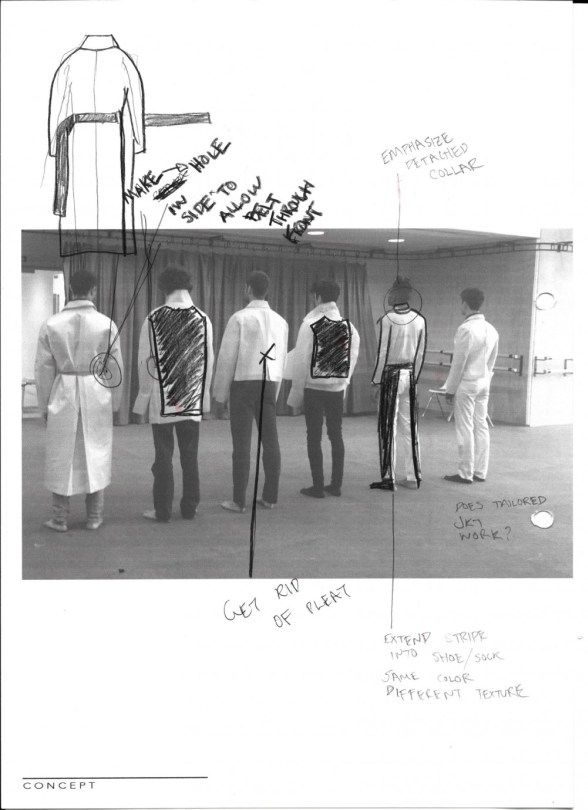 MAKE → HOLE
IN
SIDE TO
ALLOW
BELT
THROUGH
FRONT
EMPHASIZE
DETACHED
COLLAR
DOES TAILORED
JKT
WORK?
GET RID
OF PLEAT
EXTEND STRIPE
INTO SHOE/SOCK
SAME COLOR
DIFFERENT TEXTURE
CONCEPT